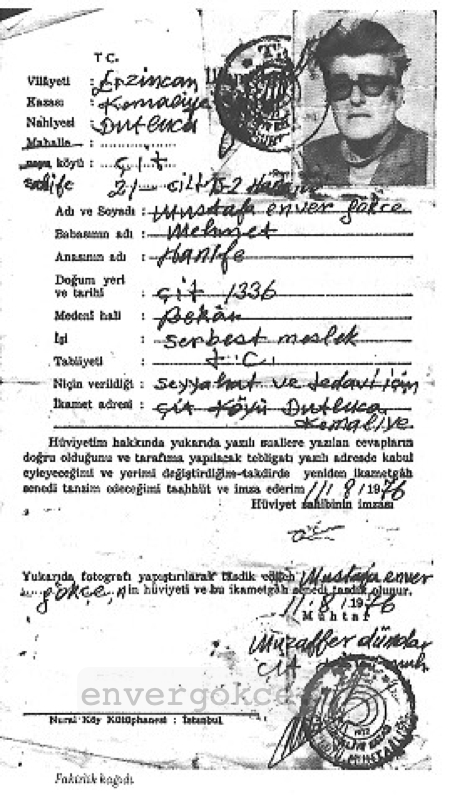 T C.
Vilâyeti : Erzincan
Kazası : Kemaliye
Nahiyesi : Dutluca
Mahalle
veya köyü : Çit
sahife 21 cilt 52 Hane
Adı ve Soyadı : Mustafa enver gökce
Babasının adı : Mehmet
Anasının adı : Hanife
Doğum yeri
ve tarihi : Çit 1336
Medenî hali : Bekâr
İşi : serbest meslek
Tabiiyeti : T.C.
Niçin verildiği : seyyahat ve tedavi için
İkamet adresi : Çit Köyü Dutluca
Kemaliye
Hüviyetim hakkında yukarıda yazılı suallere yazılan cevapların
doğru olduğunu ve tarafıma yapılacak tebligatı yazılı adresde kabul
eyleyeceğimi ve yerimi değiştirdiğim takdirde yeniden ikametgâh
senedi tanzim edeceğimi taahhüt ve imza ederim 11/8/1976
Hüviyet sahibinin imzası
Yukarıda fotografı yapıştırılarak tasdik edilen Mustafa enver
gökçe, in hüviyeti ve bu ikametgâh senedi tasdik olunur.
11.8/1976
Muhtar
Muzaffer dündar
Çit
envergökce
Nural Köy Kütüphanesi : İstanbul
Fakirlik kağıdı.